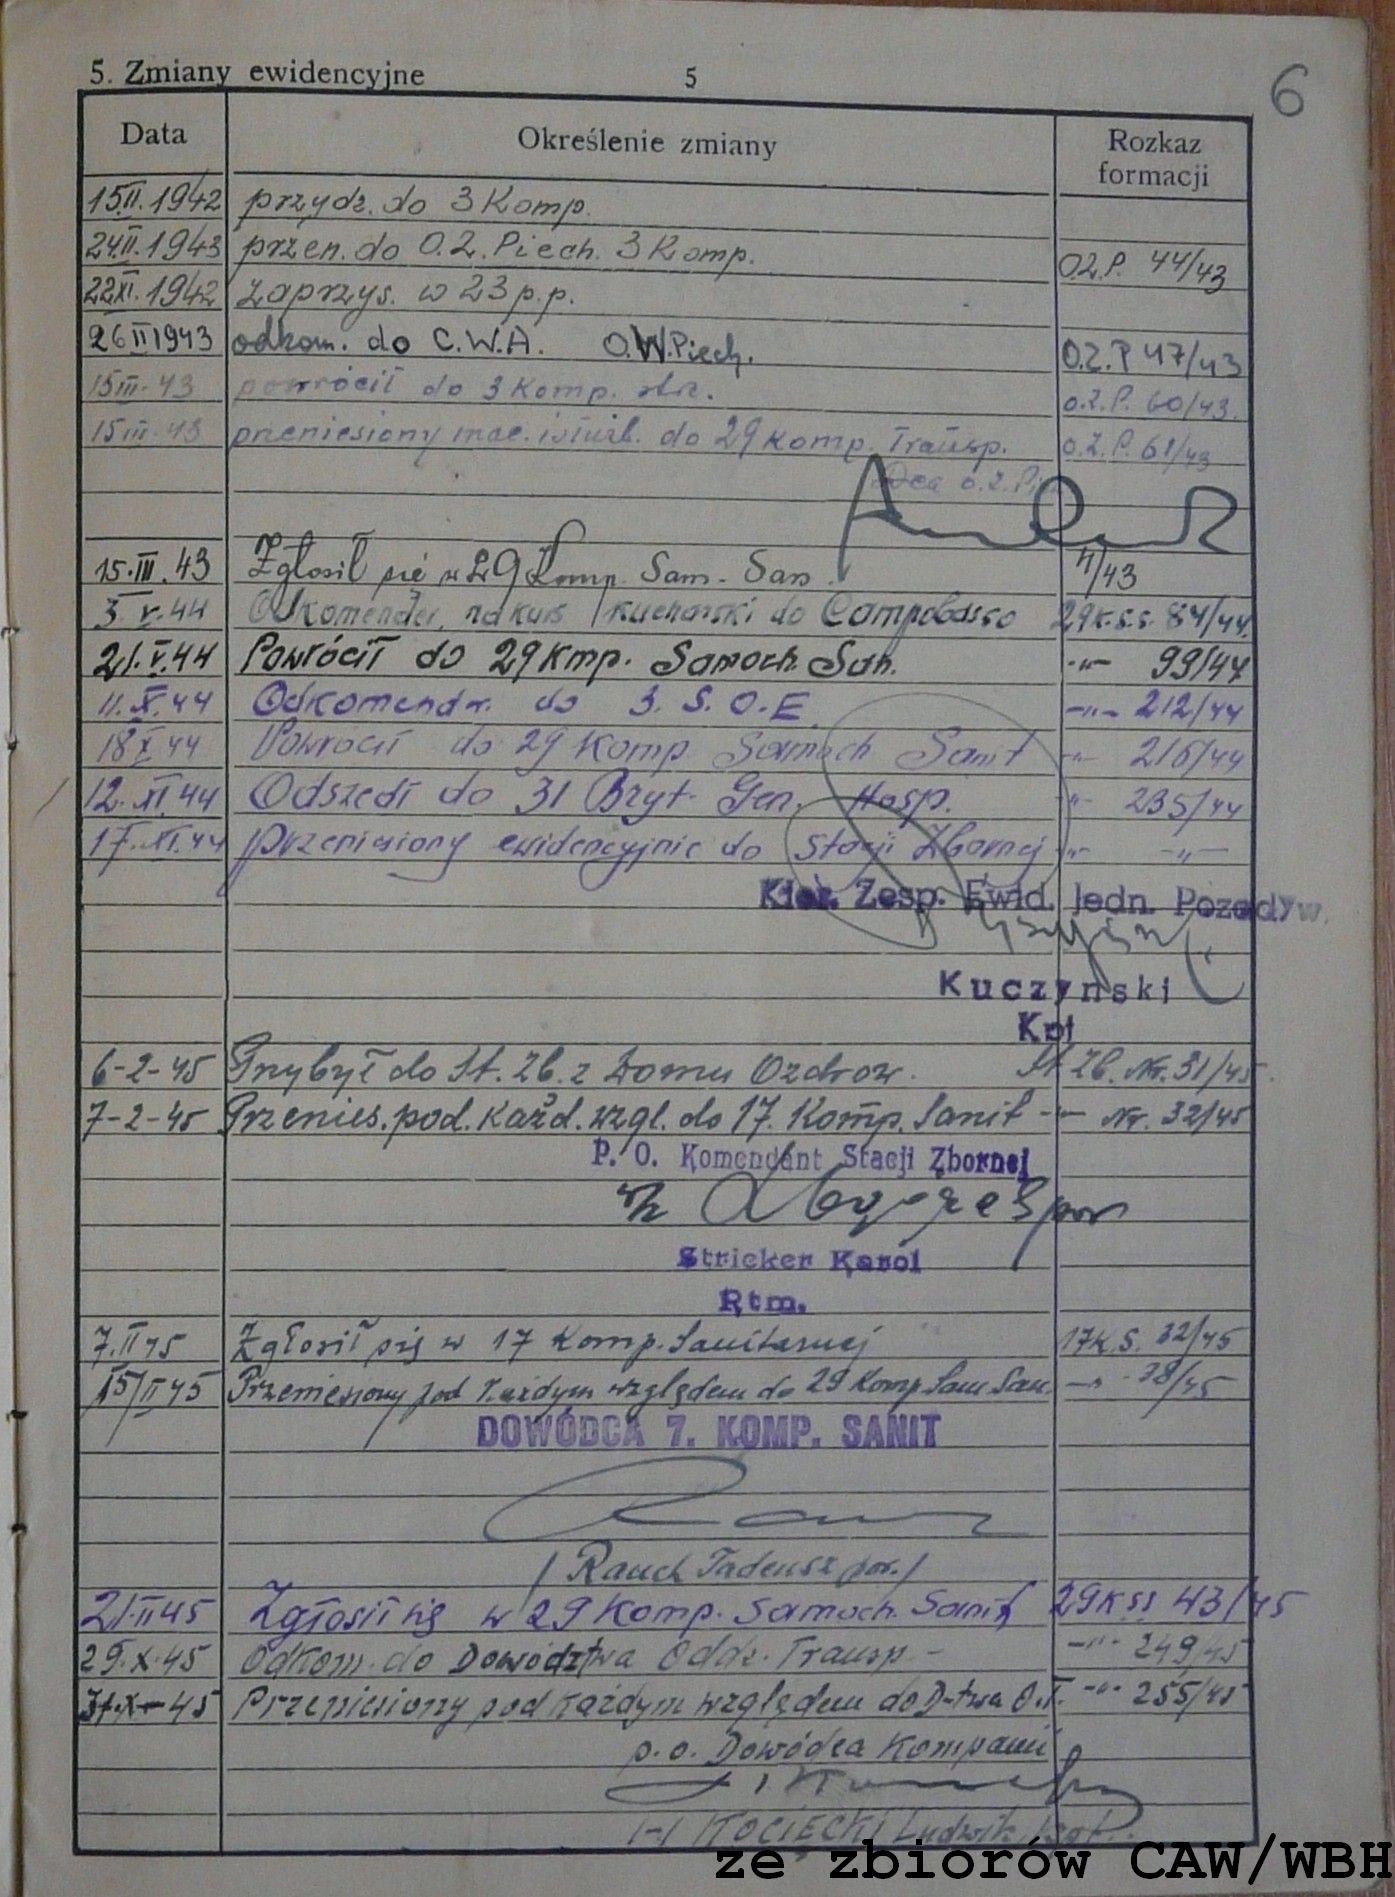 5. Zmiany ewidencyjne 5 6
Data Określenie zmiany Rozkaz formacji
15.II.1942 przydz. do 3 Komp.
24.II.1943 przen. do O.Z. Piech. 3 Komp. O.Z.P. 44/43
22.XI.1942 zaprzys. w 23 p.p.
26 II 1943 odkom. do C.W.A. O.W.Piech. O.Z.P 47/43
15 III. 43 powrócił do 3 Komp. O.Z.P. 60/43.
15 III. 43 przeniesiony do 29 Komp. Transp. O.Z.P. 61/43
Dca O.Z.Pi
15.III.43 Zgłosił się w 29 Komp. Sam. San. 11/43
3 V. 44 Odkomender. na kurs kucharski do Campobasso 29 K.S.S. 84/44.
21.V.44 Powrócił do 29 Kmp. Samoch. San. -"- 99/44
11.X.44 Odkomendr. do 3. S.O.E. -"- 212/44
18 X 44 Powrócił do 29 Komp. Samoch Sanit -"- 216/44
12.XI.44 Odszedł do 31 Bryt. Gen. Hosp. -"- 235/44
17.XI.44 przeniesiony ewidencyjnie do Stacji Zbornej -"- -"-
Kier. Zesp. Ewid. Jedn. Pozadyw.
Kuczynski
Kpt
6-2-45 Przybył do St. Zb. z Domu Ozdrow. St Zb. Nr. 31/45.
7-2-45 Przenies. pod. każd. wzgl. do 17. Komp. Sanit -"- Nr. 32/45
P. O. Komendant Stacji Zbornej
Stricker Karol
Rtm.
7.II 45 Zgłosił się w 17 Komp. Sanitarnej 17K.S. 32/45
15/II 45 Przeniesiony pod każdym względem do 29 Komp. Sam. San. -"- 38/45
DOWÓDCA 7. KOMP. SANIT
/ Rauch Tadeusz por. /
21.II 45 Zgłosił się w 29 Komp. Samoch. Sanit 29 K SS 43/45
29.X.45 Odkom. do Dowództwa Oddz. Transp - -"- 249/45
31.X-45 Przeniesiony pod każdym względem do D-twa O.T. -"- 255/45
p.o. Dowódca Kompanii
/-/ KOCIĘCKI Ludwik kpt.
ze zbiorów CAW/WBH